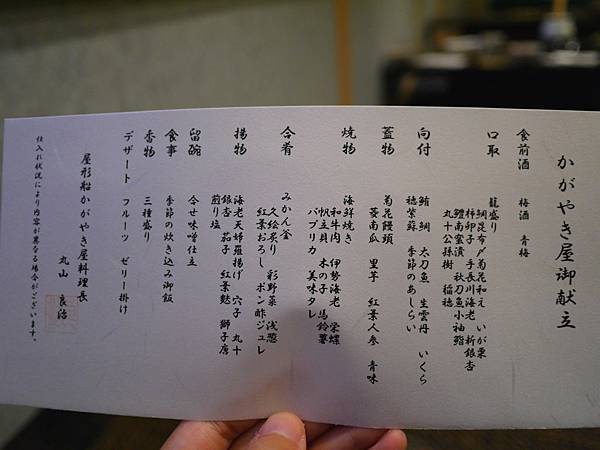 かがやき屋御献立
食前酒 梅酒 青梅
口取 籠盛り
鯛昆布〆菊花和え いが栗
柿卵子 手長川海老 新銀杏
鱧南蛮漬 秋刀魚小袖鮨
丸十公孫樹 稲穂
向付 鮪 鯛 太刀魚 生雲丹 いくら
穂紫蘇 季節のあしらい
蓋物 菊花饅頭
葵南瓜 里芋 紅葉人参 青味
焼物 海鮮焼き
和牛肉 伊勢海老 栄螺
帆立貝 木の子 馬鈴薯
パプリカ 美味タレ
合肴 みかん釜
久絵炙り 彩野菜 浅葱
紅葉おろし ポン酢ジュレ
揚物 海老天婦羅揚げ 穴子 丸十
銀杏 茄子 紅葉麩 獅子唐
煎り塩
留碗 合せ味噌仕立
食事 季節の炊き込み御飯
香物 三種盛り
デザート フルーツ ゼリー掛け
屋形船かがやき屋料理長
丸山 良治
仕入れ状況により内容が異なる場合がございます。